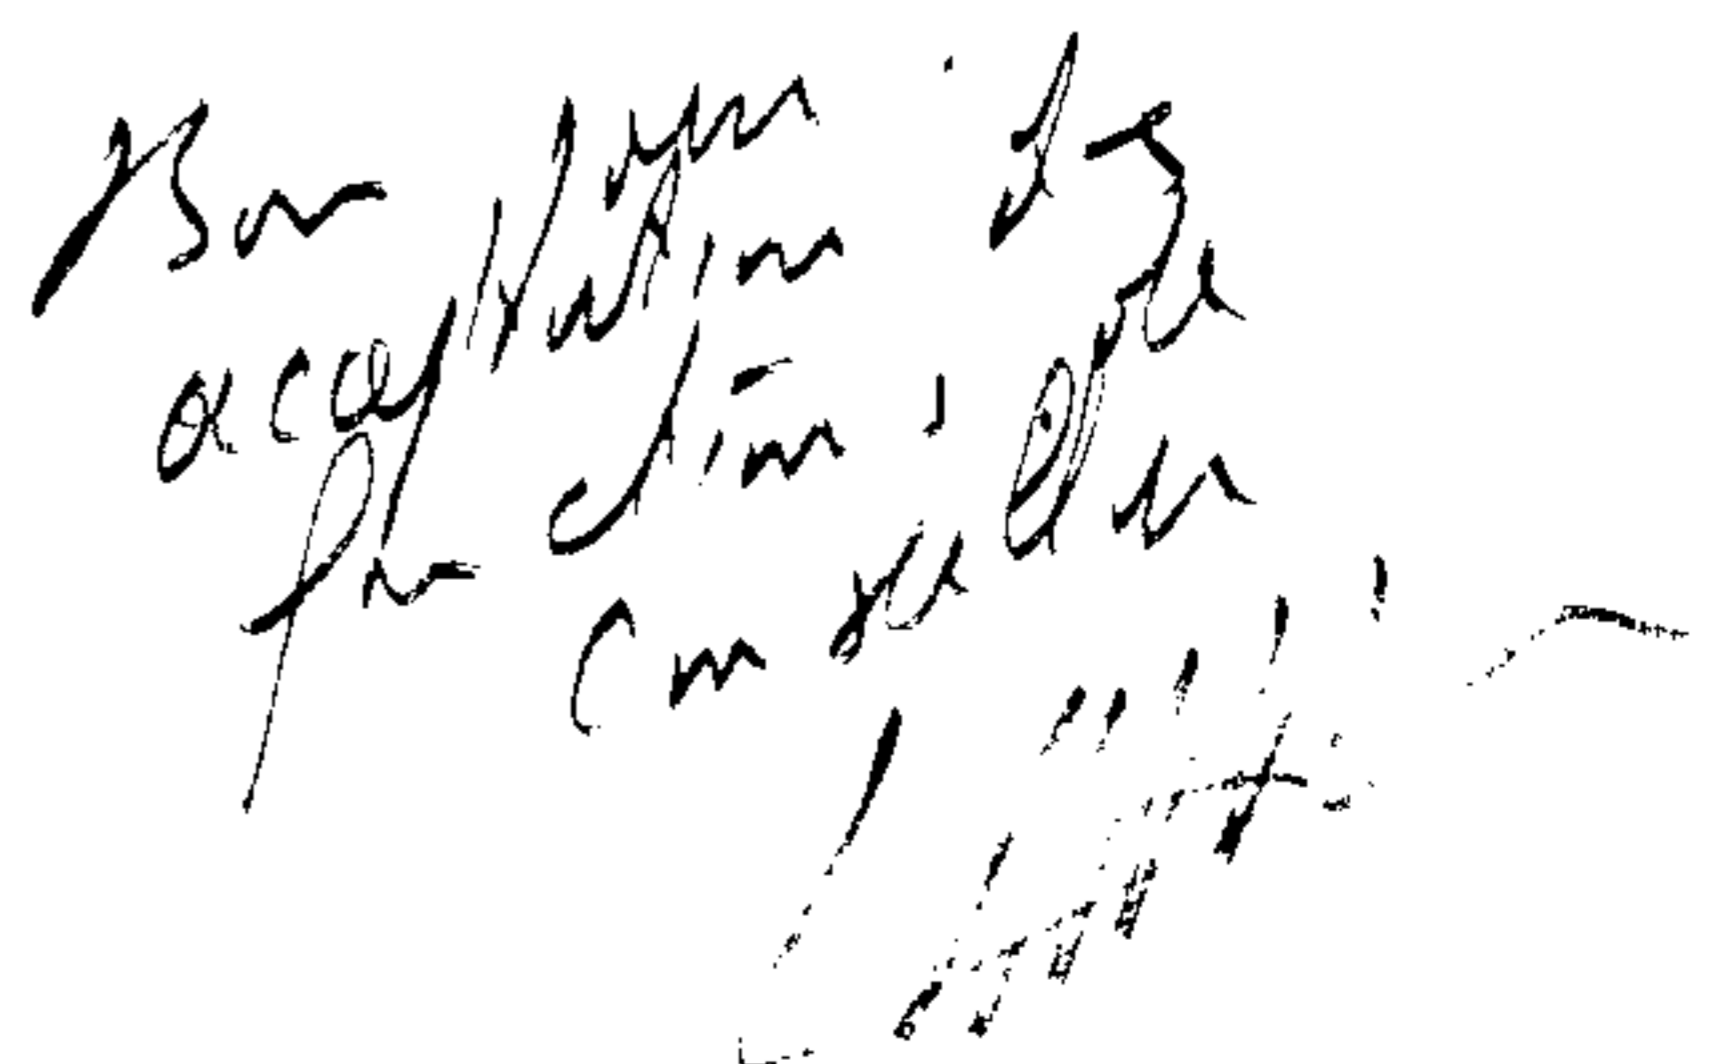 Bon pour
acceptation des
fonctions de
Conseiller